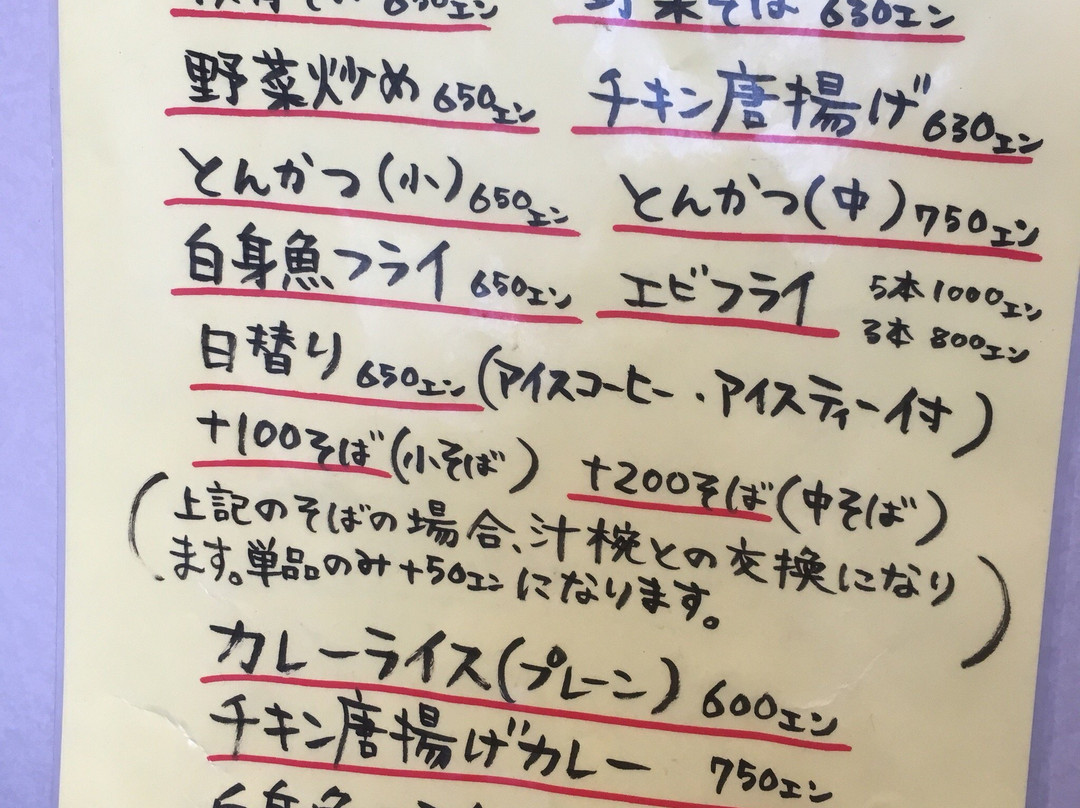 630エン 野菜そば 630エン
野菜炒め 650エン チキン唐揚げ 630エン
とんかつ(小) 650エン とんかつ(中) 750エン
白身魚フライ 650エン エビフライ 5本 1000エン
3本 800エン
日替り 650エン (アイスコーヒー・アイスティー付)
+100そば(小そば) +200そば(中そば)
(上記のそばの場合、汁椀との交換になり
ます。単品のみ+50エンになります。)
カレーライス(プレーン) 600エン
チキン唐揚げカレー 750エン